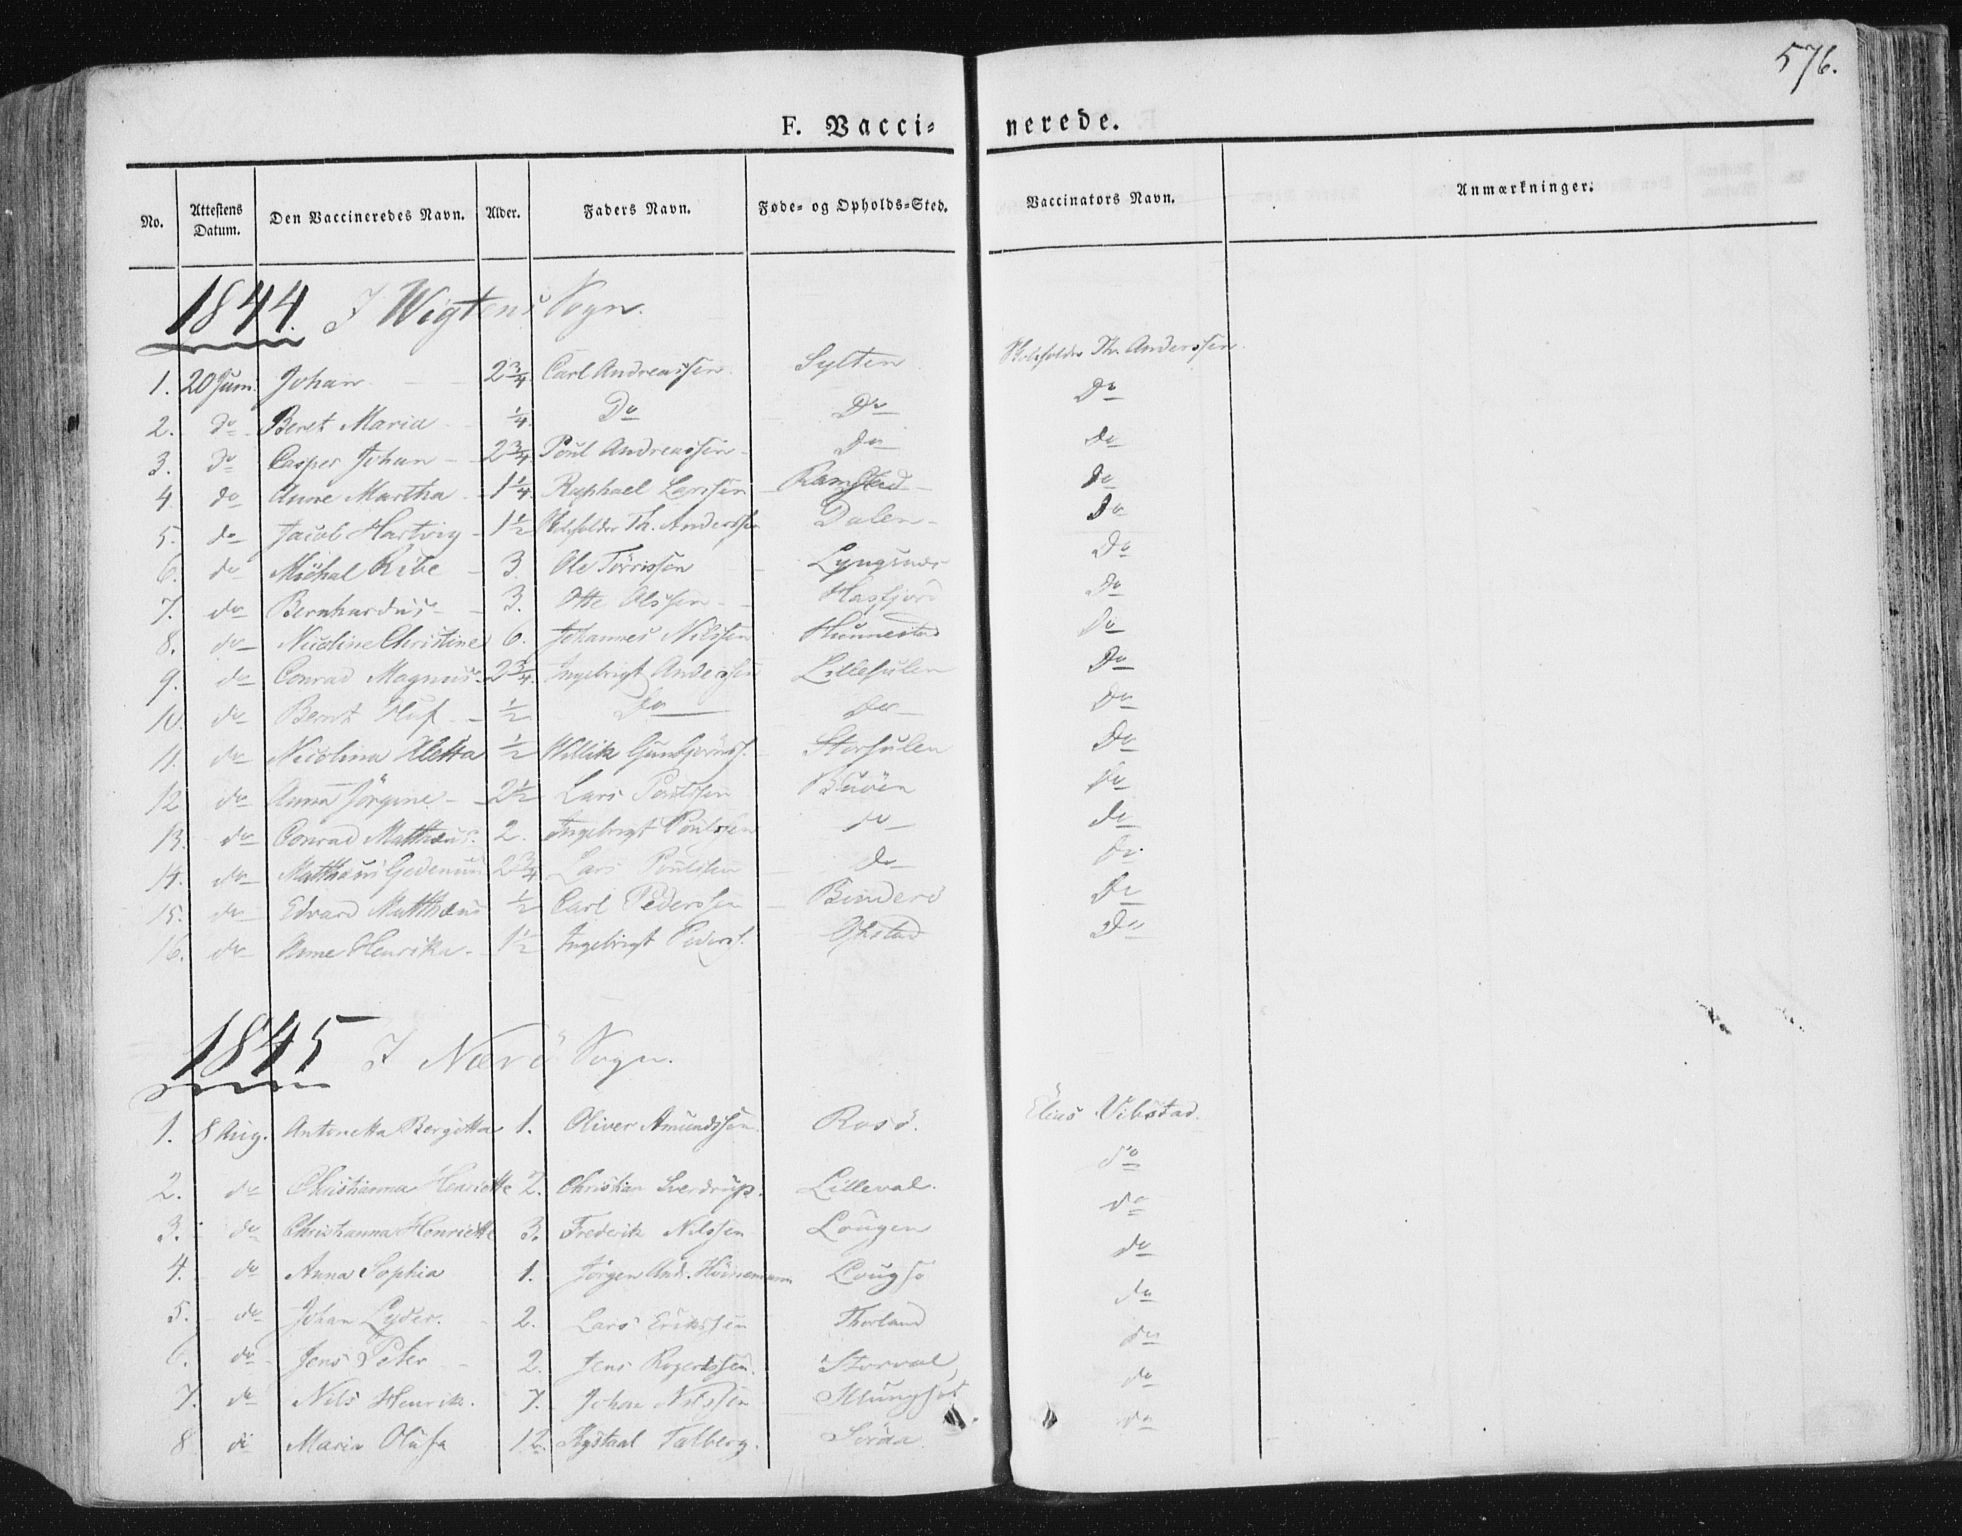 576.
F. Vacci- nerede.
No. Attestens Datum. Den Vaccineredes Navn. Alder. Faders Navn. Føde- og Opholds-Sted. Vaccinators Navn. Anmærkninger.
1844. I Wigtens Sogn.
1. 20 Juni Johan 2 3/4 Carl Andreassen Sylten Th. Anderssen
2. do Beret Maria 1/4 Do Do Do
3. do Casper Johan 2 3/4 Poul Andreassen Do Do
4. do Anne Martha 1 1/4 Raphael Larssen Ramstad Do
5. do Jacob Hartvig 1 1/2 Th. Anderssen Dalen Do
6. do Michal Ribe 3 Ole Torrissen Lyngsnæs Do
7. do Bernhardus 3. Otte Olssen Hasfjord Do
8. do Nicoline Christine 6. Johannes Nilssen Hunnestad Do
9. do Conrad Magnus 2 3/4 Ingebrigt Anderssen Lillesulen Do
10. do Bernt 1/2 Do Do Do
11. do Nicolina Aletta 1/2 Willik Storsulen Do
12 do Anna Jörgine 2 1/2 Lars Poulssen Do
13. do Conrad Mathæus 2. Ingebrigt Poulssen do Do
14. do Matthæus 2 3/4 Lars Poulssen do Do
15. do Edvard Matthæus 1/2 Carl Pederssen Binderö Do
16. do Anne Henrika 1 1/2 Ingebrigt Peders. Do
1845 I Nærö Sogn.
1. 8 Aug. Antonetta Bergitta 1. Oliver Amundssen Rosö. Elias Vibstad.
2. do Christianna Henriette 2. Christian Sverdrup. Lilleval. do
3. do Christianna Henriette 3. Frederik Nilssen Lougen do
4. do Anna Sophia 1. Jörgen And. Lougsö do
5. do Johan Lyder. 2. Lars Erikssen Thorland do
6. do Jens Peter 2. Jens Rogertssen. Storval do
7. do Nils Henrik. 7. Johan Nilssen do
8 do Maria Olufa 12. Talberg. Söraa do